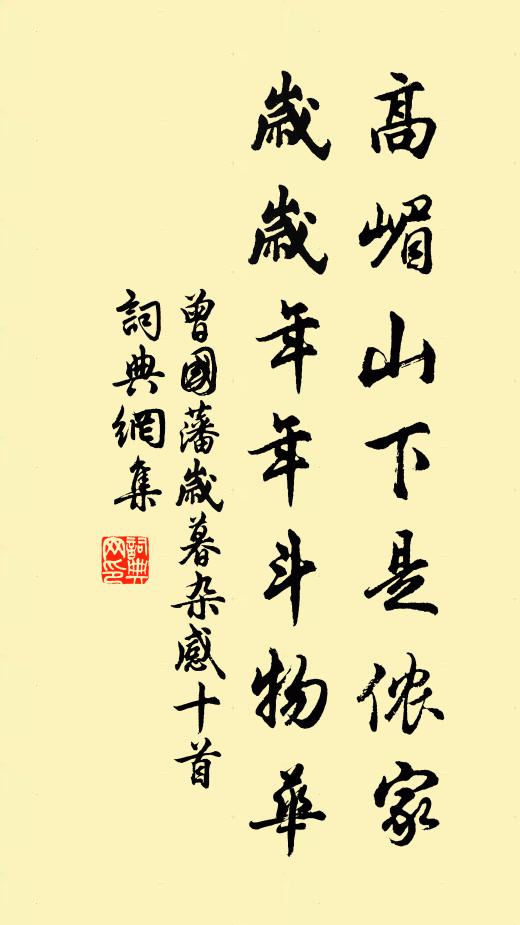 高嵋山下是侬家
歲歲年年斗物華
曾國藩歲暮杂感十首
詞典網集
詞典
网印